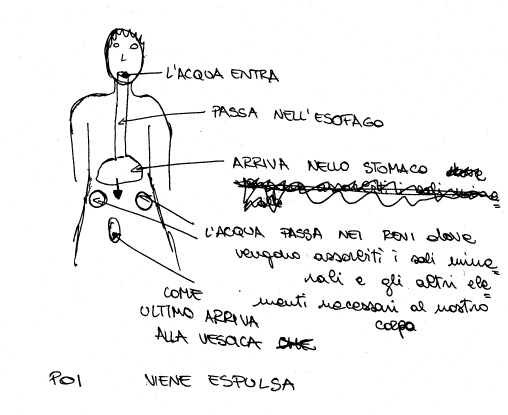 L'ACQUA ENTRA
PASSA NELL'ESOFAGO
ARRIVA NELLO STOMACO
L'ACQUA PASSA NEI RENI dove
vengono assorbiti i sali mine=
rali e gli altri ele=
menti necessari al nostro
corpo
COME
ULTIMO ARRIVA
ALLA VESCICA CHE
POI VIENE ESPULSA